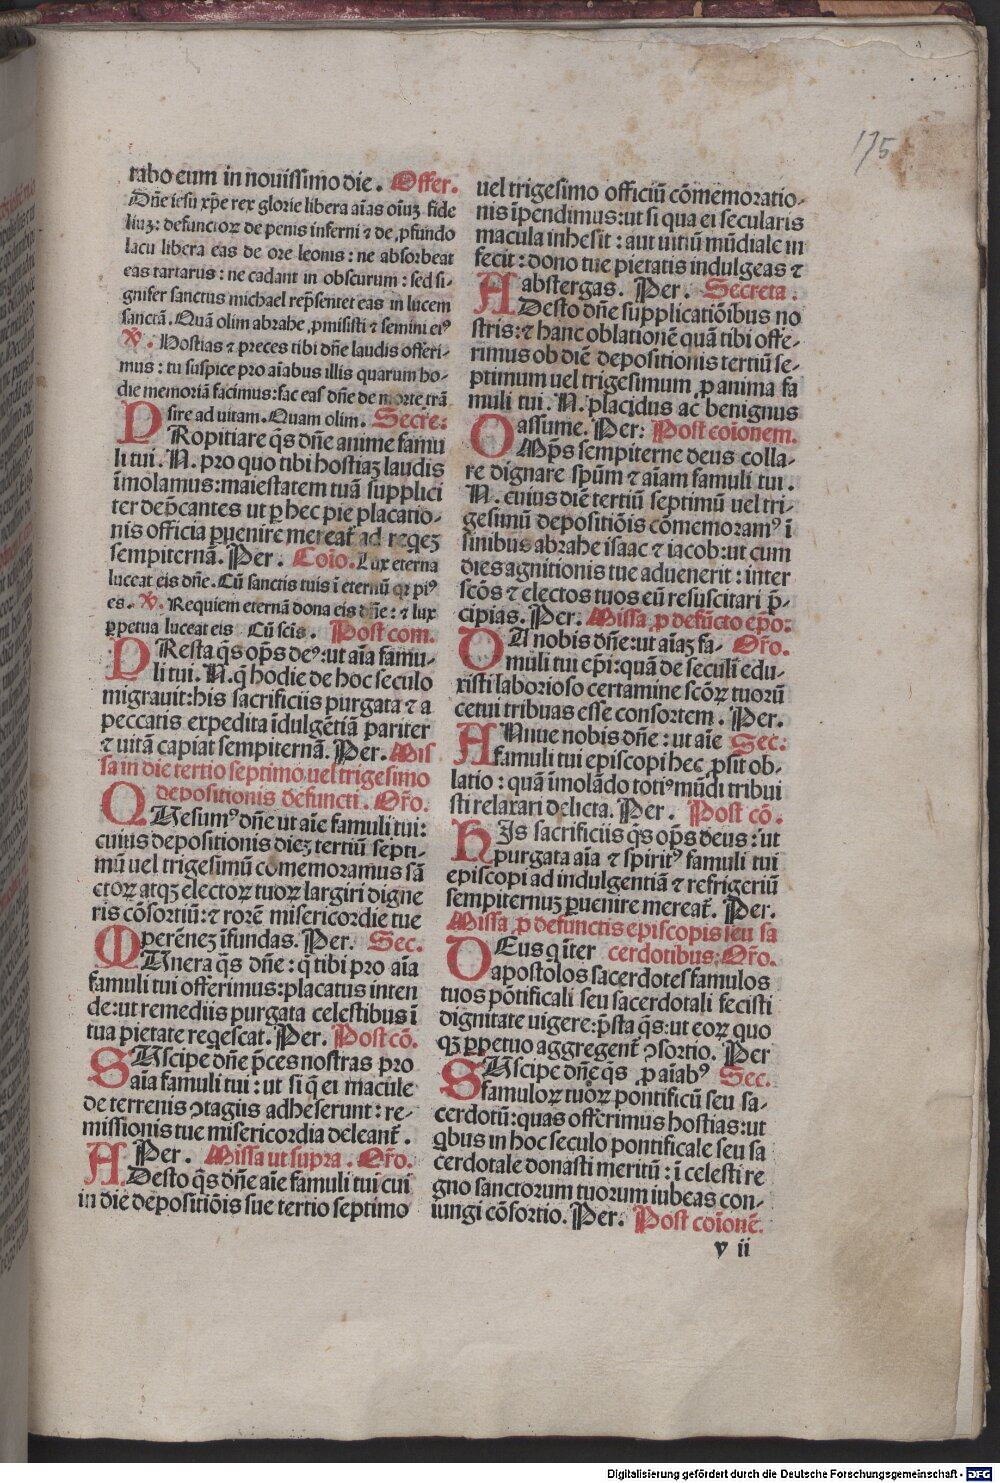 175
rabo eum in nouissimo die. Offer.
Dñe iesu xp̄e rex glorie libera aīas oīuꝫ fide
liuꝫ: defunctoꝝ de penis inferni ⁊ de ꝓfundo
lacu libera eas de ore leonis: ne absorbeat
eas tartarus: ne cadant in obscurum: sed si-
gnifer sanctus michael rep̄sentet eas in lucem
sanctā. Quā olim abrahe ꝓmisisti ⁊ semini eiꝰ
℣. Hostias ⁊ preces tibi dñe laudis offeri-
mus: tu suspice pro aīabus illis quarum ho-
die memoriā facimus: fac eas dñe de morte trā
sire ad uitam. Quam olim. Secre:
PRopitiare q̄s dñe anime famu
li tui. N. pro quo tibi hostiaꝫ laudis
īmolamus: maiestatem tuā supplici
ter dep̄cantes ut ꝑ hec pie placatio-
nis officia ꝑuenire mereat̄ ad reqeꝫ
sempiternā. Per. Coīo. Lux eterna
luceat eis dñe. Cū sanctis tuis ī eternū qꝛ piꝰ
es. ℣. Requiem eternā dona eis dñe: ⁊ lux
ꝑpetua luceat eis Cū scīs. Post com.
PResta q̄s op̄s deꝰ: ut aīa famu-
li tui. N. q̄ hodie de hoc seculo
migrauit: his sacrificiis purgata ⁊ a
peccatis expedita īdulgētiā pariter
⁊ uitā capiat sempiternā. Per. Mis
sa in die tertio septimo uel trigesimo
depositionis defuncti. Or̄o.
QUesumꝰ dñe ut aīe famuli tui:
cuius depositionis dieꝫ tertium septi-
mū uel trigesimū cōmemoramus sā
ctoꝝ atqꝫ electoꝝ tuoꝝ largiri digne
ris cōsortiū: ⁊ rorē misericordie tue
perēneꝫ īfundas. Per. Sec.
MUnera q̄s dñe: q̄ tibi pro aīa
famuli tui offerimus: placatus inten
de: ut remediis purgata celestibus ī
tua pietate reqescat. Per. Post cō.
SUscipe dñe p̄ces nostras pro
aīa famuli tui: ut si q̄ ei macule
de terrenis ↄtagiis adheserunt: re-
missionis tue misericordia deleant̄.
Per. Missa ut supra. Or̄o.
ADesto q̄s dñe aīe famuli tui cui
in die depositiōis sue tertio septimo
uel trigesimo officiū cōmemoratio-
nis īpendimus: ut si qua ei secularis
macula inhesit: aut uitiū mūdiale in
fecit: dono tue pietatis indulgeas ⁊
abstergas. Per. Secreta.
ADesto dñe supplicatiōibus no
stris: ⁊ hanc oblationē quā tibi offe-
rimus ob diē depositionis tertiū se-
ptimum uel trigesimum ꝓ anima fa
muli tui. N. placidus ac benignus
assume. Per: Post coīonem.
OMp̄s sempiterne deus colla-
re dignare spūm ⁊ aīam famuli tui.
N. cuius diē tertiū septimū uel tri-
gesimū depositiōis cōmemoramꝰ ī
sinibus abrahe isaac ⁊ iacob: ut cum
dies agnitionis tue aduenerit: inter
scōs ⁊ electos tuos eū resuscitari p̄-
cipias. Per. Missa ꝓ defūcto ep̄o:
DA nobis dñe: ut aīaꝫ fa- Or̄o.
muli tui ep̄i: quā de seculi edu-
xisti laborioso certamine scōꝝ tuorū
cetui tribuas esse consortem. Per.
ANnue nobis dñe: ut aīe Sec:
famuli tui episcopi hec ꝓsit ob-
latio: quā īmolādo totiꝰ mūdi tribui
sti relaxari delicta. Per. Post cō.
HIs sacrificiis q̄s op̄s deus: ut
purgata aīa ⁊ spiritꝰ famuli tui
episcopi ad indulgentiā ⁊ refrigeriū
sempiternuꝫ ꝑuenire mereat̄. Per.
Missa ꝓ defunctis episcopis seu sa
DEus q̄ iter cerdotibus: Or̄o.
apostolos sacerdotes famulos
tuos pōtificali seu sacerdotali fecisti
dignitate uigere: p̄sta q̄s: ut eoꝝ quo
qꝫ ꝑpetuo aggregent̄ ↄsortio. Per
SUscipe dñe q̄s ꝓ aīabꝰ Sec.
famuloꝝ tuoꝝ pontificū seu sa-
cerdotū: quas offerimus hostias: ut
qbus in hoc seculo pontificale seu sa
cerdotale donasti meritū: ī celesti re
gno sanctorum tuorum iubeas con-
iungi cōsortio. Per. Post coīonē.
v ii
Digitalisierung gefördert durch die Deutsche Forschungsgemeinschaft - DFG